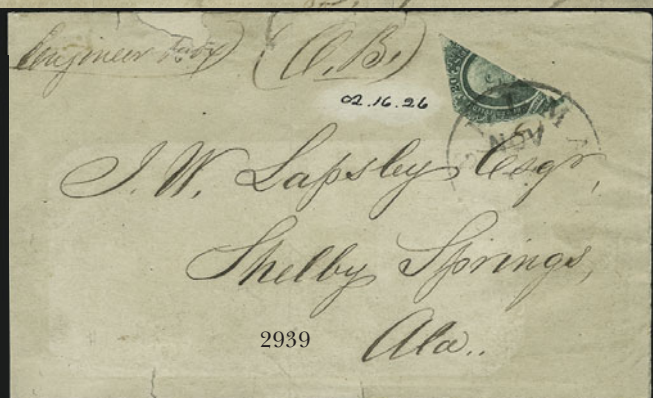 Engineer (O.B.)
02.16.26
SELMA
NOV
J. W. Lapsley Esqr,
Shelby Springs,
Ala..
2939